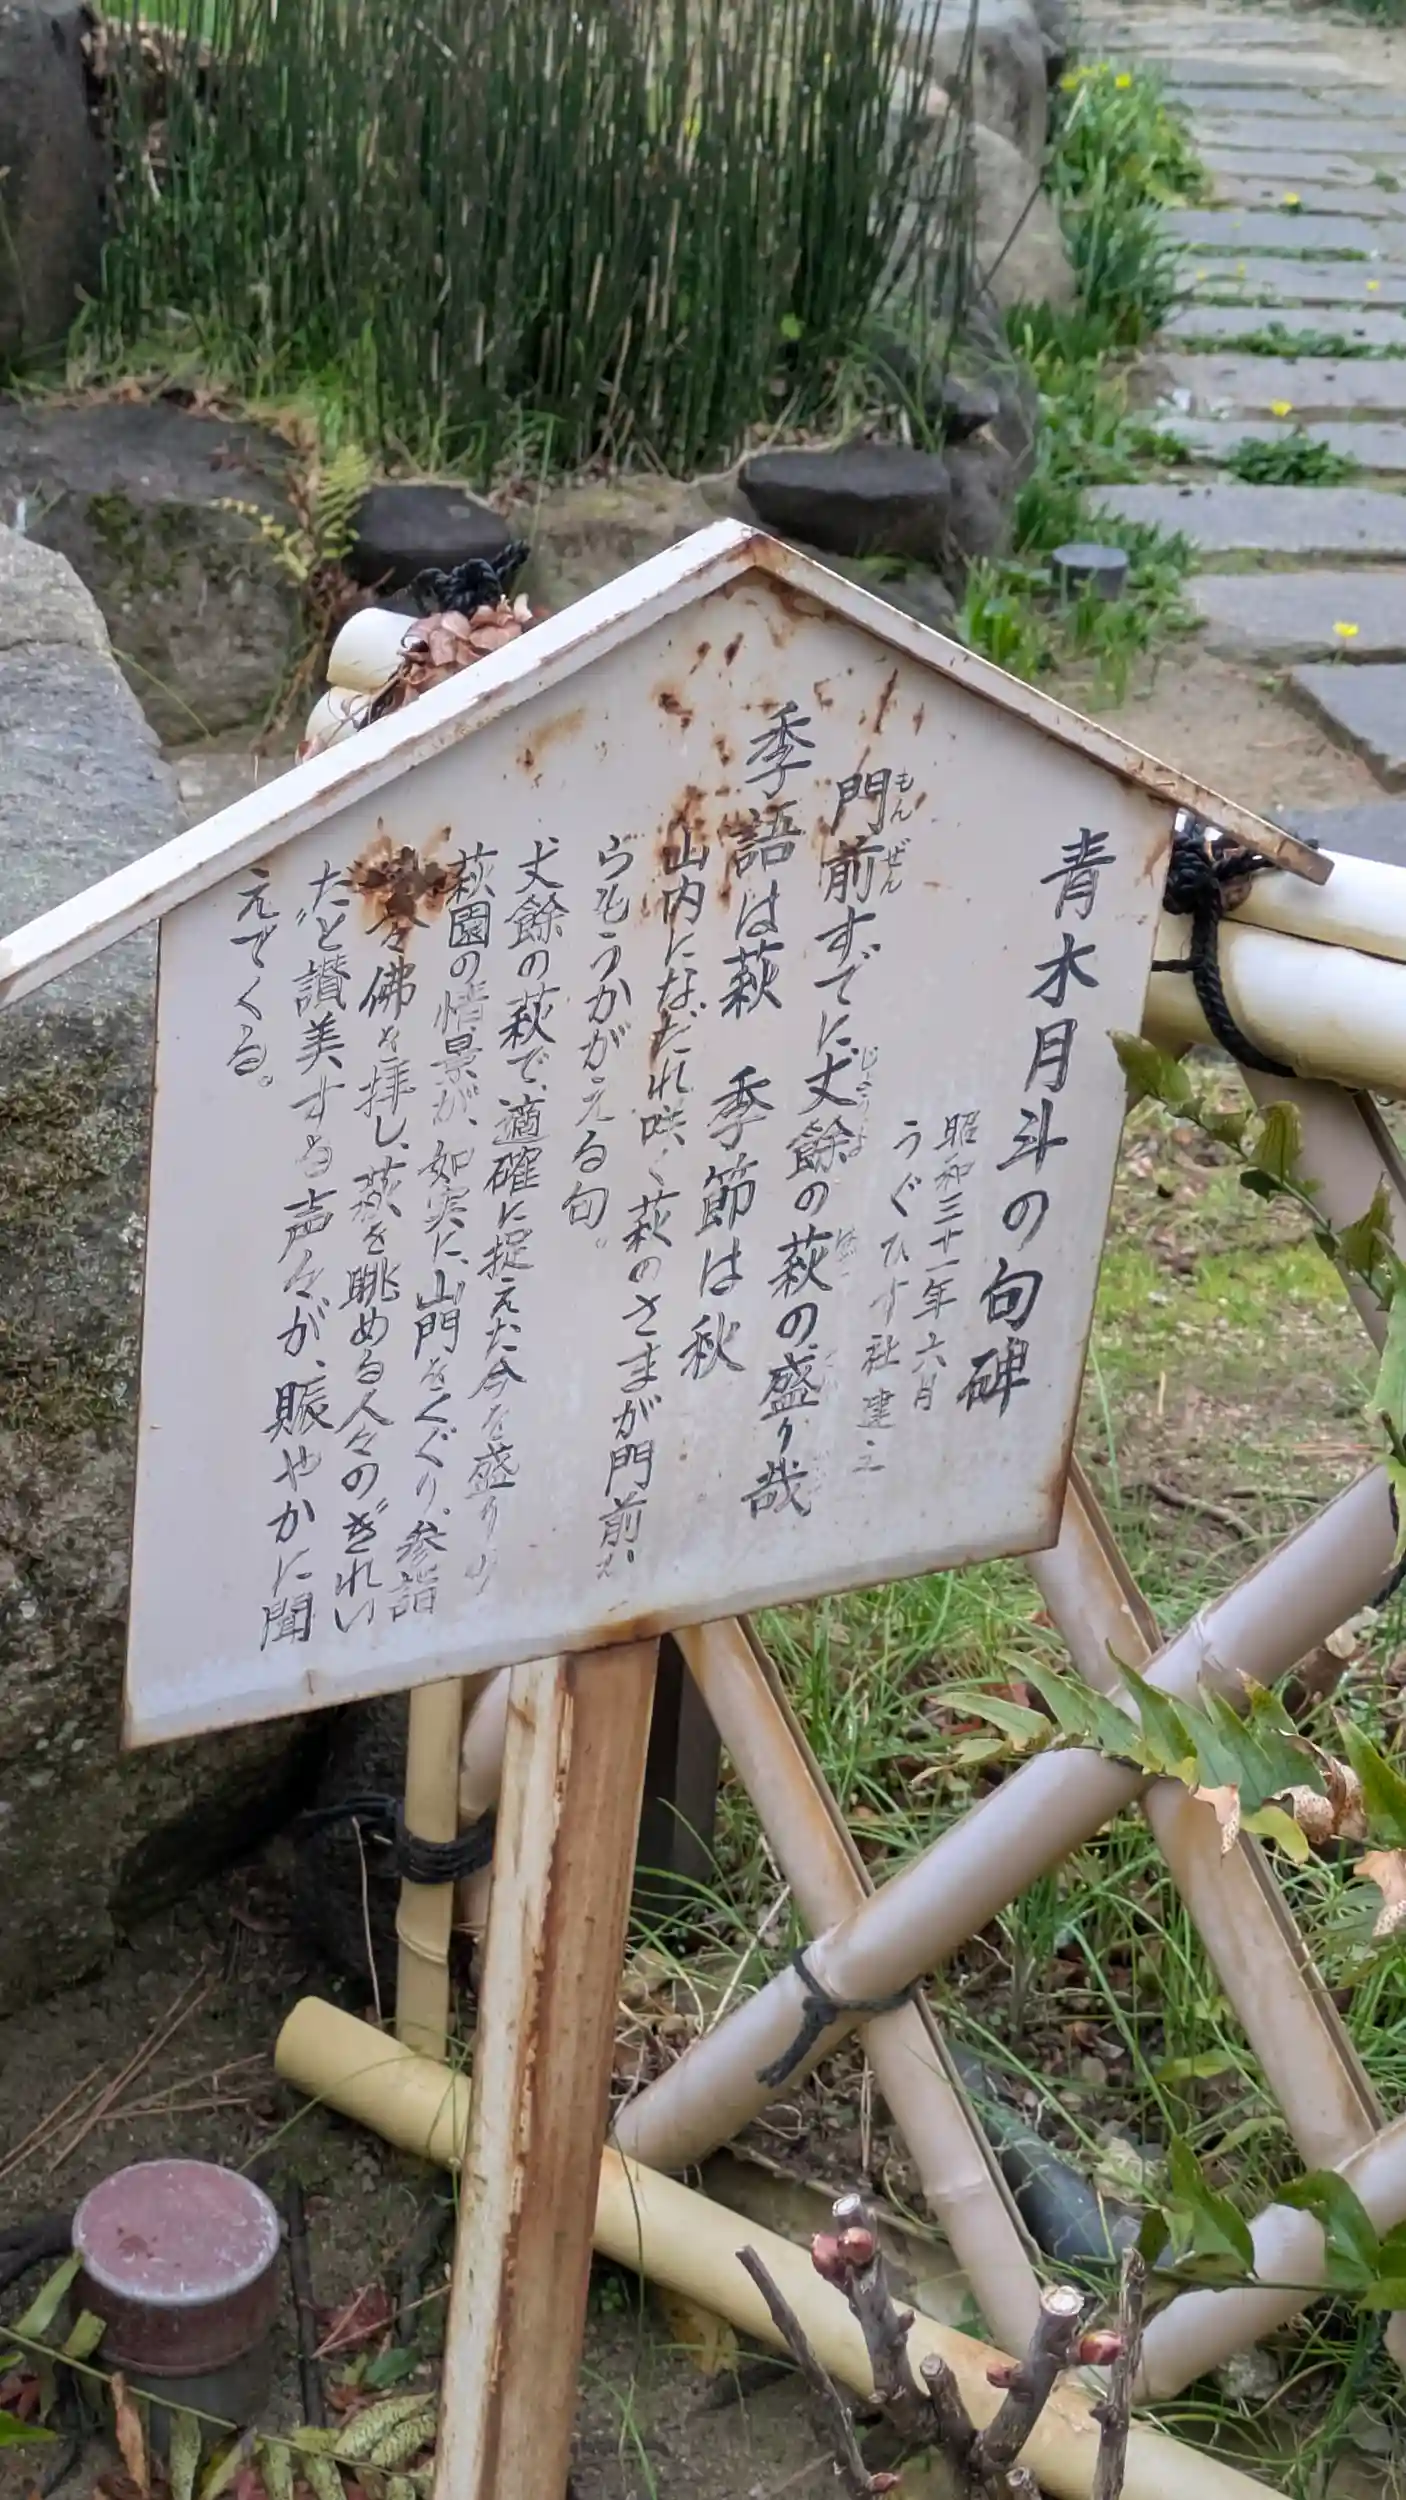 青木月斗の句碑
昭和三十一年六月
うぐひす社建之
門前すでに丈餘の萩の盛り哉
もんぜん
じょうよ
季語は萩 季節は秋
山内になだれ咲く萩のさまが門前か
らもうかがえる句。
丈餘の萩で、適確に捉えた今を盛りの
萩園の情景が、如実に、山門をくぐり、参詣
々佛を拝し、萩を眺める人々のきれい
だと讃美する声々が、賑やかに聞
えてくる。